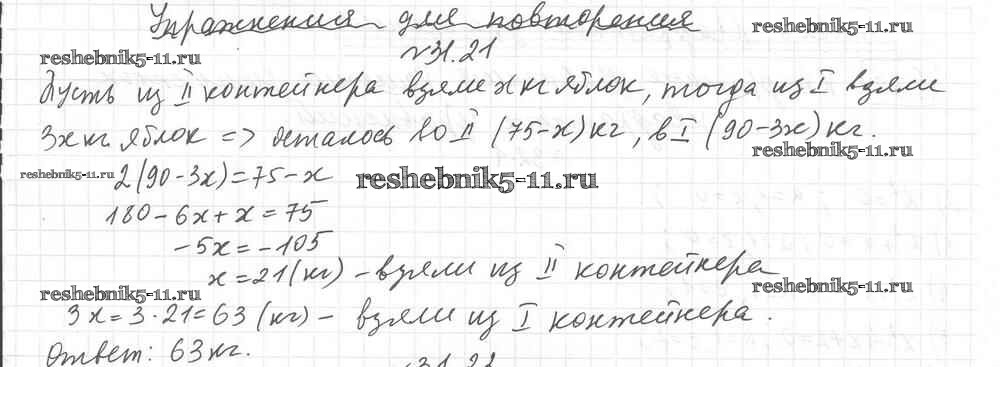 Упражнения для повторения
reshebnik5-11.ru
reshebnik5-11.ru
№31.21
Пусть из II контейнера взяли x кг яблок, тогда из I взяли
3x кг яблок => осталось во II (75-x) кг, в I (90-3x) кг.
reshebnik5-11.ru
reshebnik5-11.ru
2(90-3x)=75-x
reshebnik5-11.ru
180-6x+x=75
-5x=-105
x=21(кг) - взяли из II контейнера
reshebnik5-11.ru
reshebnik5-11.ru
3x=3·21=63 (кг) - взяли из I контейнера.
Ответ: 63 кг.
31.22